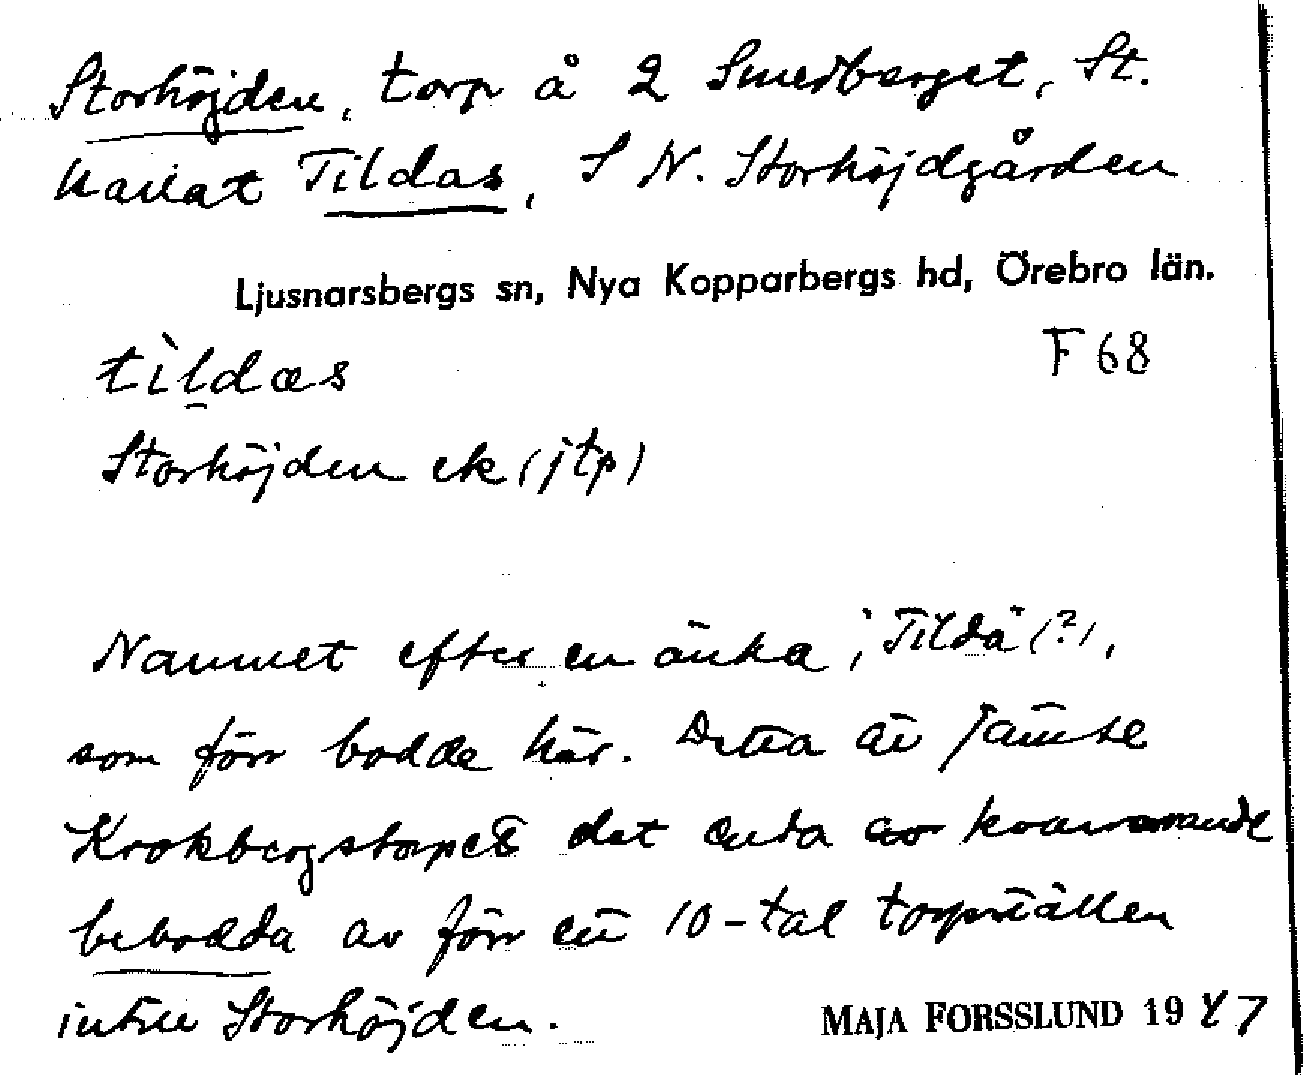 Storhöjden, torp å 2 Smedberget, St.
kallat Tildas, S N. Storhöjdgården
Ljusnarsbergs sn, Nya Kopparbergs hd, Örebro län.
tìldas
F 68
Storhöjden ek (jtp)
Namnet efter en änka, "Tilda" (?),
som förr bodde här. Detta är jämte
Krokbergstorpet det enda av kvarvarande
bebodda av förr ett 10-tal torpställen
intill Storhöjden.
MAJA FORSSLUND 1947